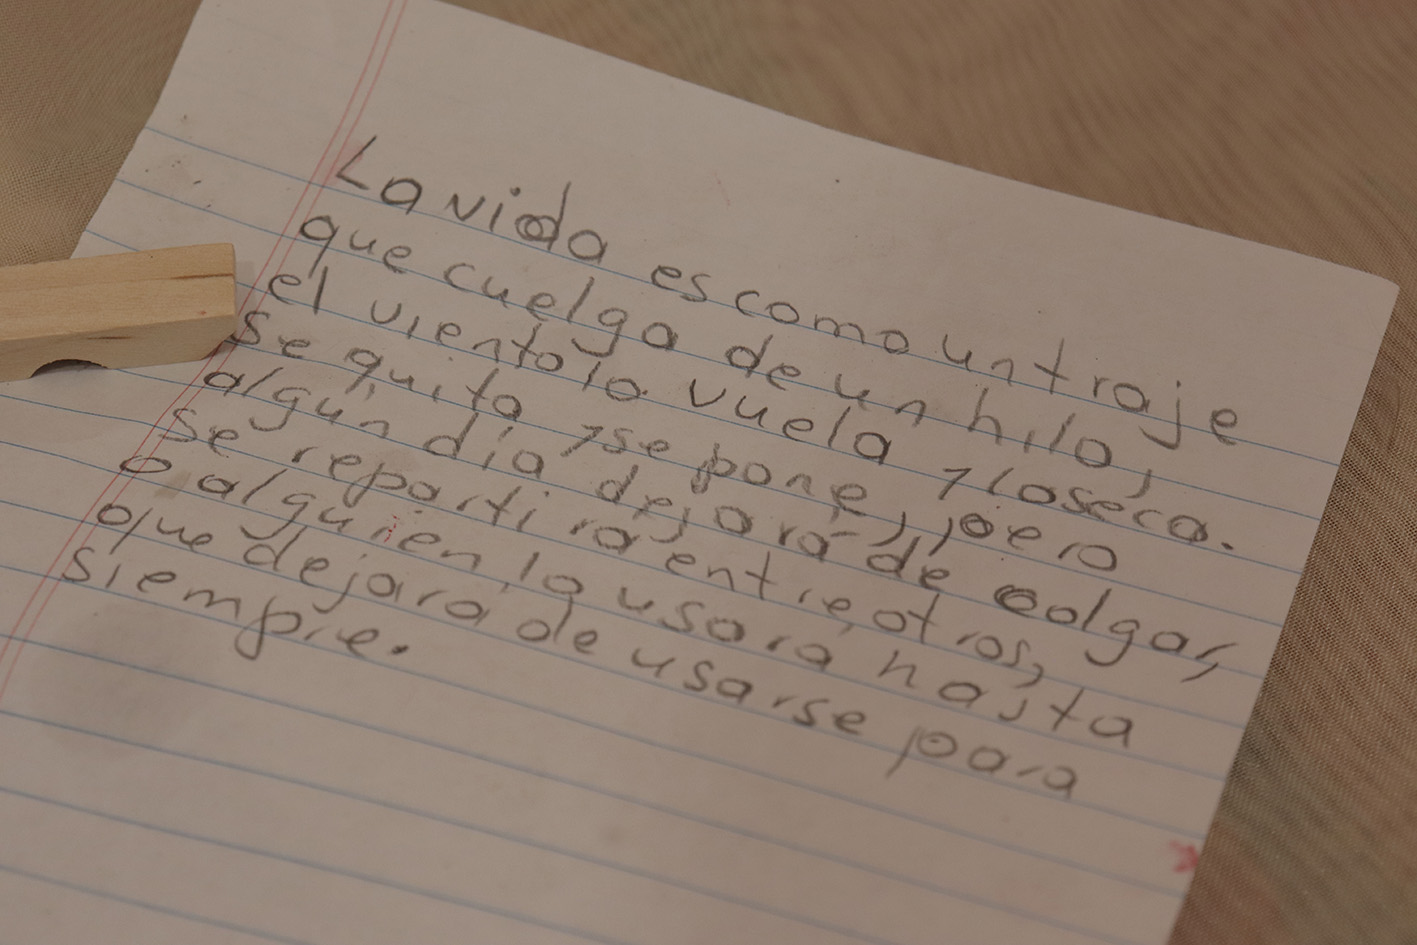 La vida es como un traje
que cuelga de un hilo,
el viento lo vuela y lo seca.
se quita y se pone, pero
algún día dejará de colgar,
se repartirá entre otros,
o alguien lo usará hasta
que dejará de usarse para
siempre.